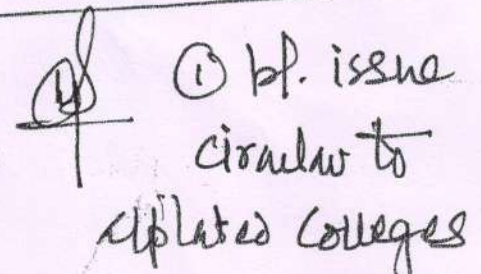 ① pl. issue
circular to
affiliated Colleges